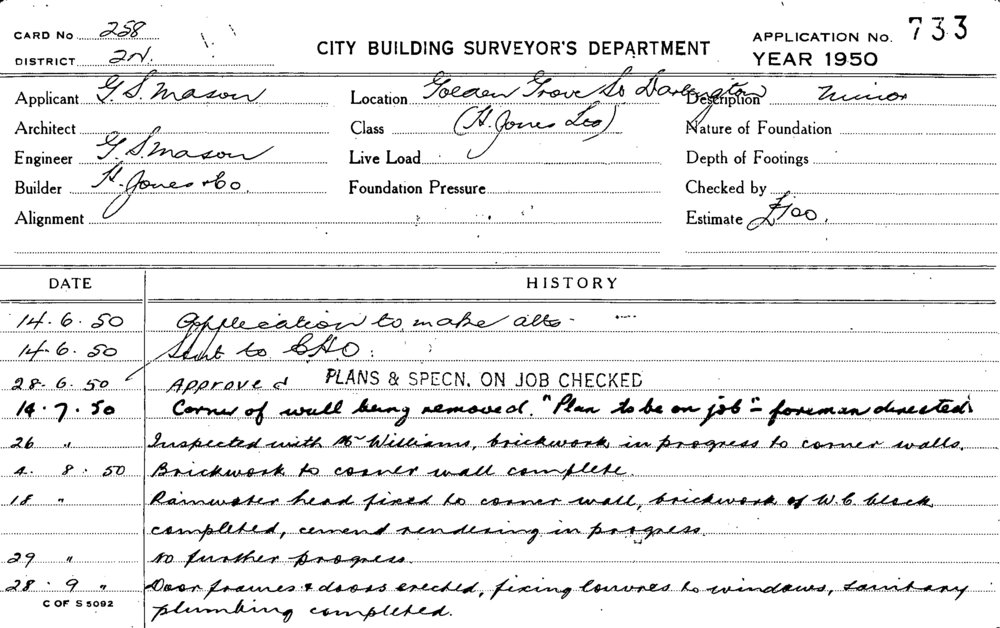 CARD No 258
DISTRICT 2N.
CITY BUILDING SURVEYOR'S DEPARTMENT
APPLICATION No. 733
YEAR 1950
Applicant G. S. Mason
Location Golden Grove St Darlington
Description Minor
Architect
Class (H. Jones & Co)
Nature of Foundation
Engineer G. S. Mason
Live Load
Depth of Footings
Builder H. Jones & Co.
Foundation Pressure
Checked by
Alignment
Estimate £100.
DATE HISTORY
14.6.50 Application to make alts
14.6.50 Sent to CHO.
28.6.50 Approved PLANS & SPECN. ON JOB CHECKED
14.7.50 Corner of wall being removed. "Plan to be on job" – foreman directed.
26 " Inspected with Mr Williams, brickwork in progress to corner walls.
4. 8. 50 Brickwork to corner wall complete.
18 " Rainwater head fixed to corner wall, brickwork of W.C. block
completed, cement rendering in progress.
29 " No further progress.
28. 9 " Door frames & doors erected, fixing louvres to windows, sanitary
plumbing completed.
C OF S 5092